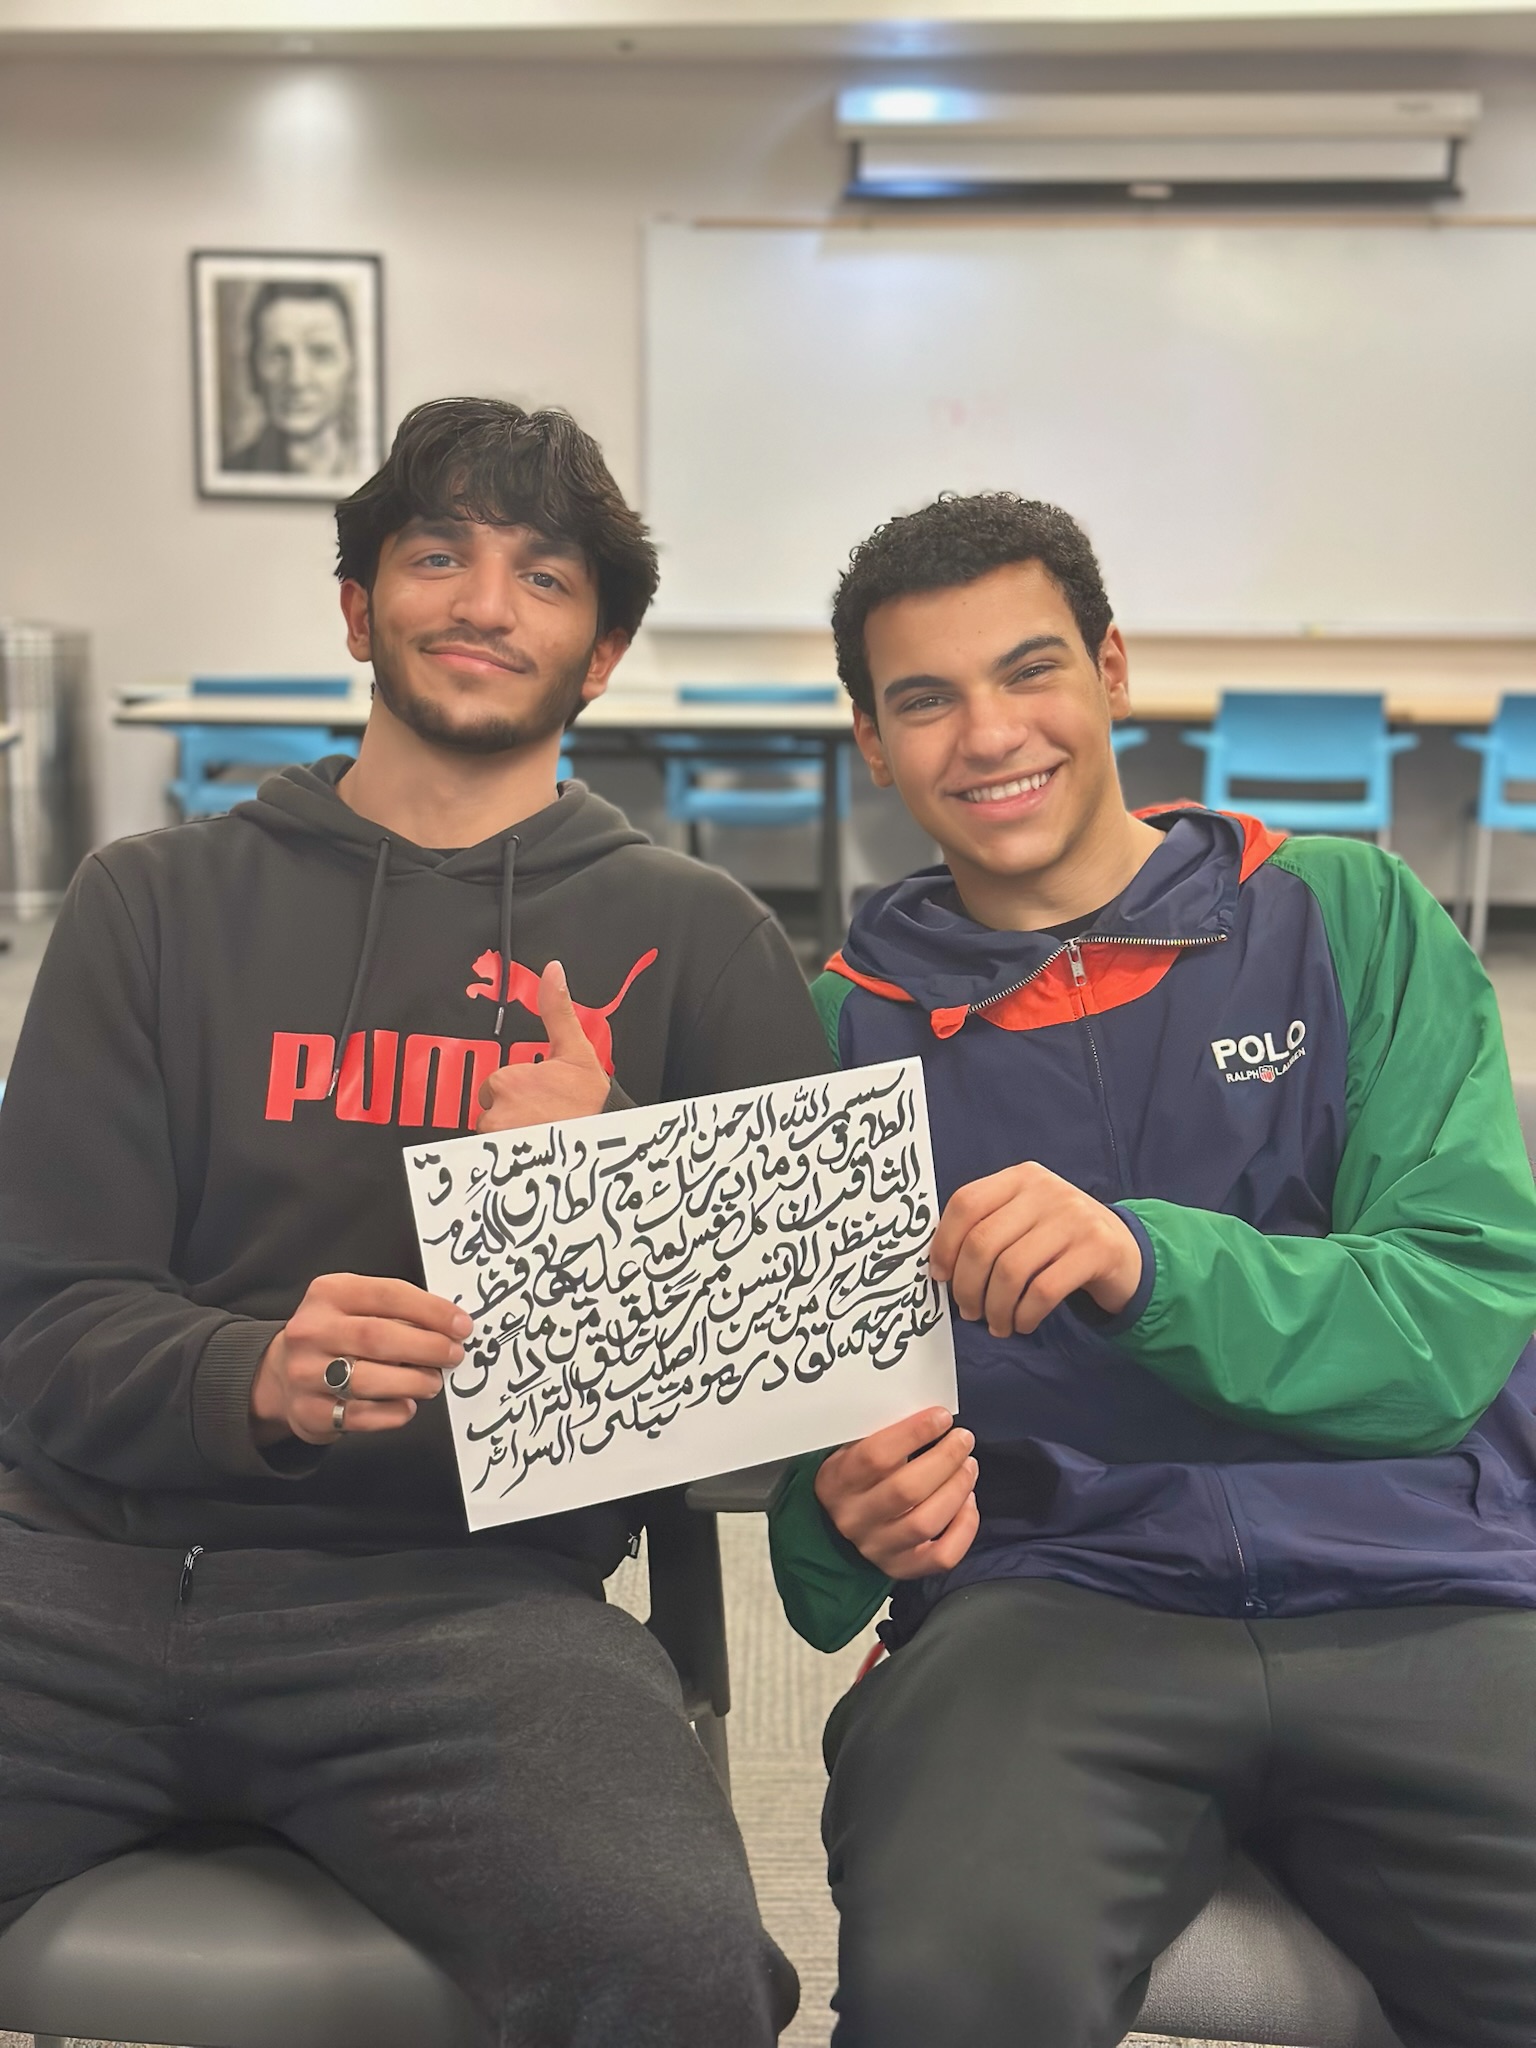 PUMA
POLO
RALPH LAUREN
بسم الله الرحمن الرحيم والسماء و
الطارق وما ادريك ما لطارق النجم
الثاقب ان كل نفس لما عليها حافظ
فلينظر الانسن مم خلق خلق من ماء دافق
يخرج من بين الصلب والترائب
انه على رجعه لقادر يوم تبلى السرائر